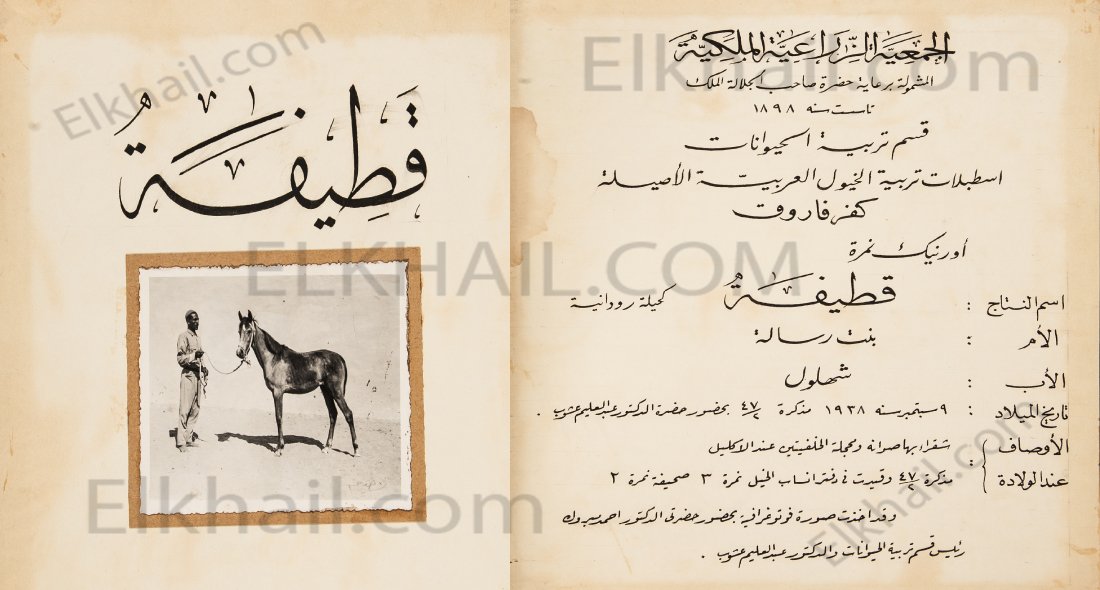 Elkhail.com
قَطِيفَةٌ
ELKHAIL.COM
Elkhail.com
Elkhail.com
الجمعيَّة الزِّراعيَّة الملَكيَّة
المشمولة برعاية حضرة صاحب الجلالة الملك
تاسست سنه ١٨٩٨
قسم تربية الحيوانات
اسطبلات تربية الخيول العربيّة الأصيلة
كفر فاروق
أورنيك نمرة
اسم النتاج : قطيفةٌ كحيلة رودانية
الأم : بنت رسالة
الأب : شهلول
تاريخ الميلاد : ٩ سبتمبر سنه ١٩٣٨ مذكرة ٤٧/٢ بحضور حضرة الدكتور عبدالعليم عشوب .
الأوصاف عند الولادة : شقراء بها صوانه ومحجلة الخلفيتين عند الاكليل
مذكرة ٤٧/٢ وقيدت فى دفتر انساب الخيل نمرة ٣ صحيفة نمرة ٢
وقد اخذت صورة فوتوغرافية بحضور حضرتى الدكتور احمد مبروك
رئيس قسم تربية الحيوانات والدكتور عبدالعليم عشوب .
Elkhail.com